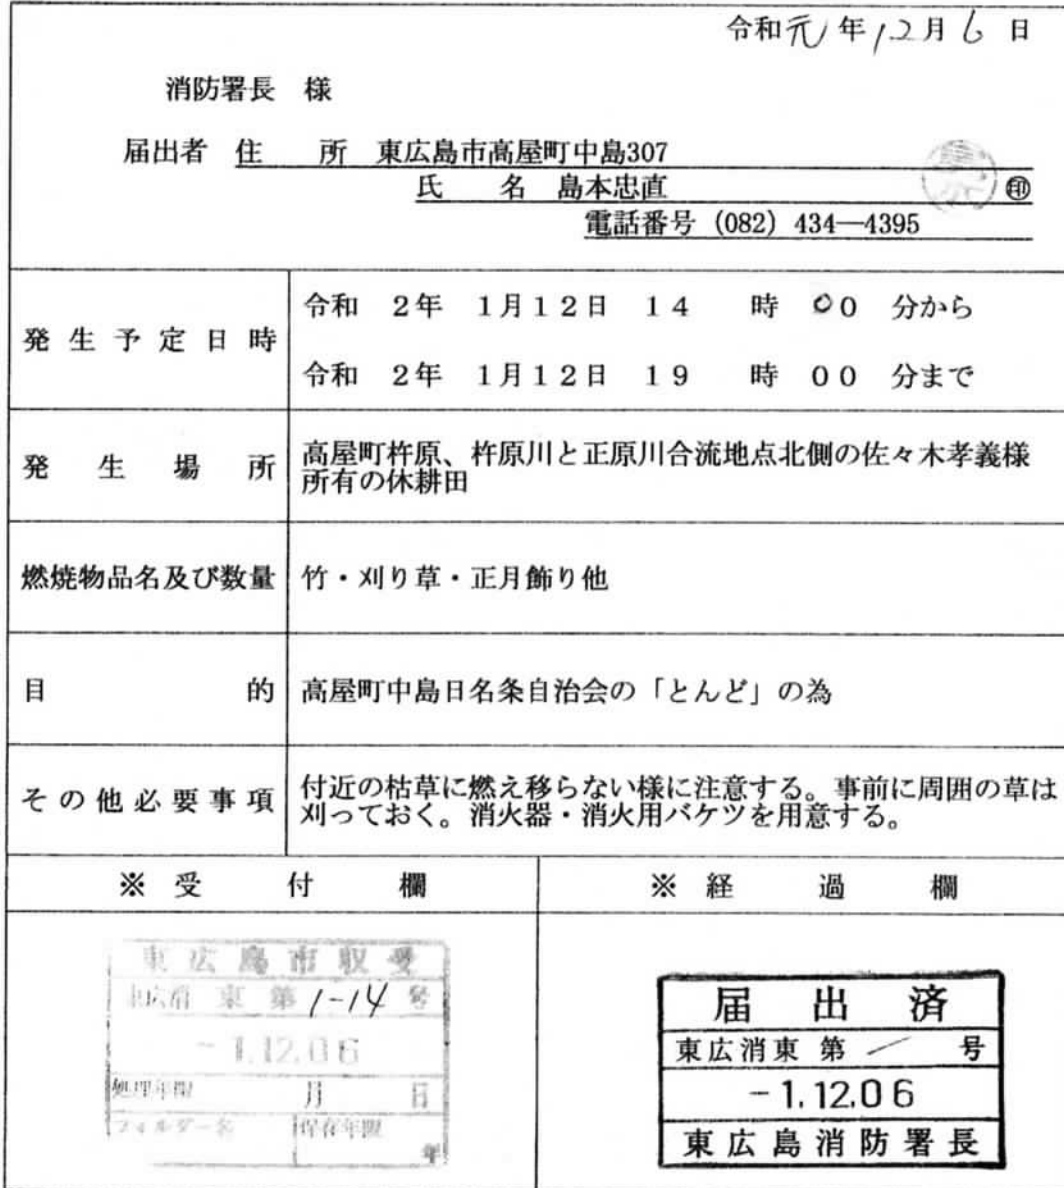 令和元年12月6日
消防署長 様
届出者 住 所 東広島市高屋町中島307
氏 名 島本忠直 ㊞
電話番号 (082) 434―4395
発生予定日時
令和 2年 1月12日 14 時 00 分から
令和 2年 1月12日 19 時 00 分まで
発生場所
高屋町杵原、杵原川と正原川合流地点北側の佐々木孝義様
所有の休耕田
燃焼物品名及び数量
竹・刈り草・正月飾り他
目的
高屋町中島日名条自治会の「とんど」の為
その他必要事項
付近の枯草に燃え移らない様に注意する。事前に周囲の草は
刈っておく。消火器・消火用バケツを用意する。
※受付欄
※経過欄
東広島市収受
東広消 東 第1-14号
-1.12.06
処理年限 月 日
フォルダー名 保存年限
年
届出済
東広消東 第 ／ 号
-1.12.06
東広島消防署長